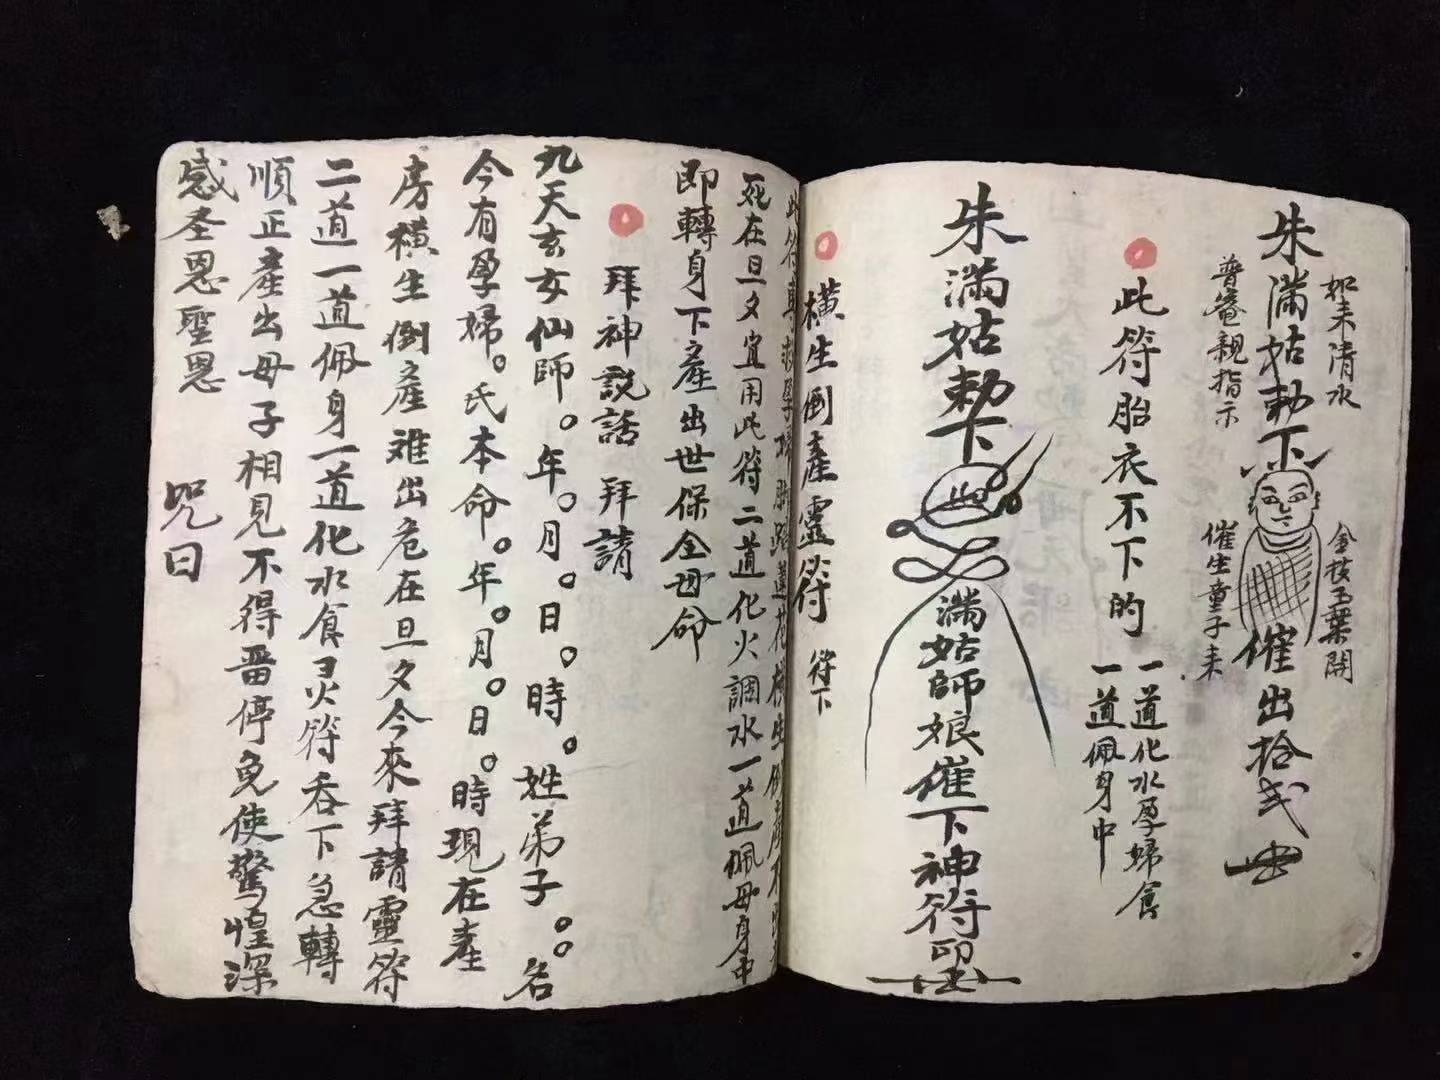 如来清水
朱滿姑勅下
普庵親指示
金枝玉葉開
催出拾弍
催生童子来
此符胎衣不下的
一道化水孕婦食
一道佩身中
朱滿姑勅下
滿姑師娘催下神符印
橫生倒產靈符 符下
此符專救孕婦脚踏蓮花橫生倒產不
死在旦夕宜用此符二道化火調水一道佩母身中
即轉身下產出世保全母命
拜神說話 拜請
九天玄女仙師。年。月。日。時。姓弟子。。名
今有孕婦。氏本命。年。月。日。時現在產
房橫生倒產难出危在旦夕今來拜請靈符
二道一道佩身一道化水食灵符吞下急轉
順正產出母子相見不得畱停免使驚惶深
感圣恩聖恩 咒曰